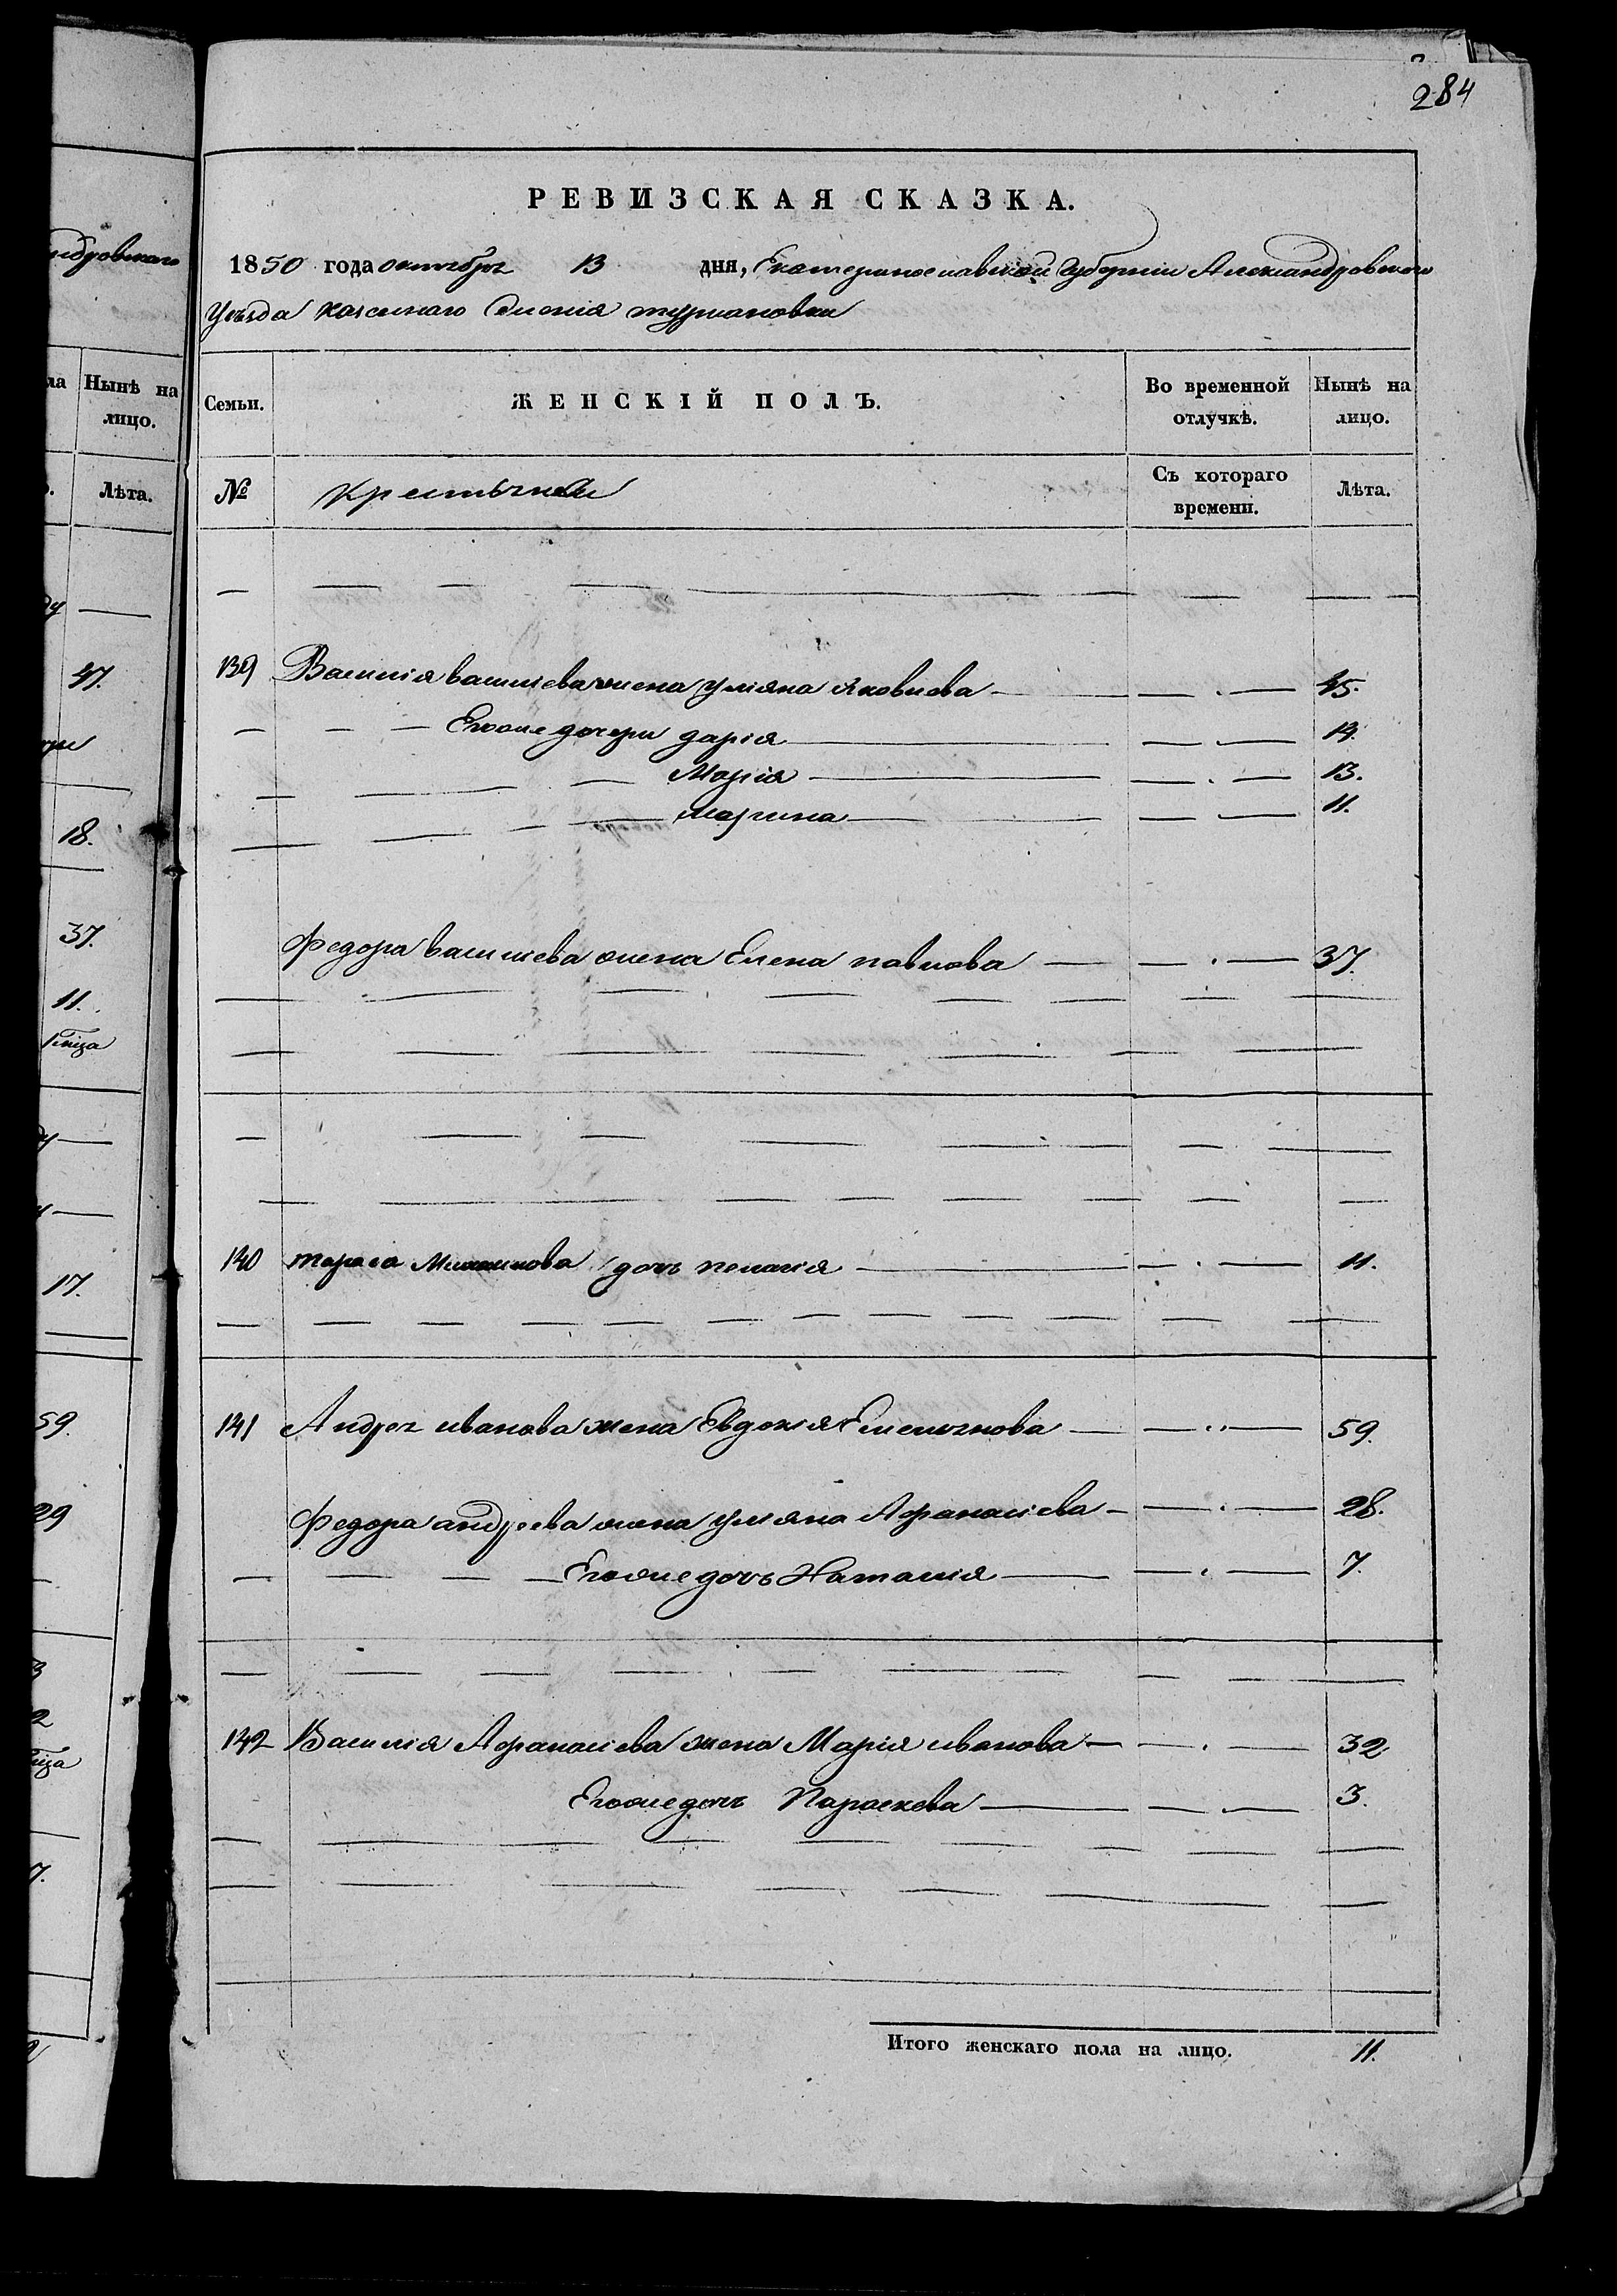 284
РЕВИЗСКАЯ СКАЗКА.
1850 года октября 13 дня, Екатеринославской Губернии Александровского
Уезда казенного Селенія туркановки
Семьи. ЖЕНСКІЙ ПОЛЪ. Во временной отлучкѣ. Нынѣ на лицо.
№ Крестьянки Съ котораго времени. Лѣта.
139 Василія васильева жена Ульяна Яковлева 45.
Егоже дочери дарія 19.
Марія 13.
Марина 11.
Федора васильева жена Елена павлова 37.
140 тараса дочь пелагія 11.
141 Андрея иванова жена Евдокія Емельянова 59.
Федора андреева жена ульяна Афанасіева 28.
Егоже дочь Наталія 7.
142 Василія Афанасіева жена Марія иванова 32
Егоже дочь Параскева 3.
Итого женскаго пола на лицо. 11.
ла Нынѣ на
лицо.
Лѣта.
47.
18.
37.
11.
17.
59.
29